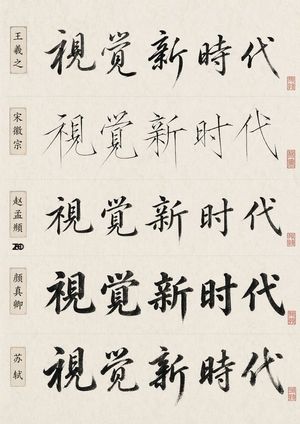 王羲之
視覚新時代
宋徽宗
視覚新时代
赵孟頫
視覚新时代
颜真卿
視覚新时代
苏轼
視覚新時代